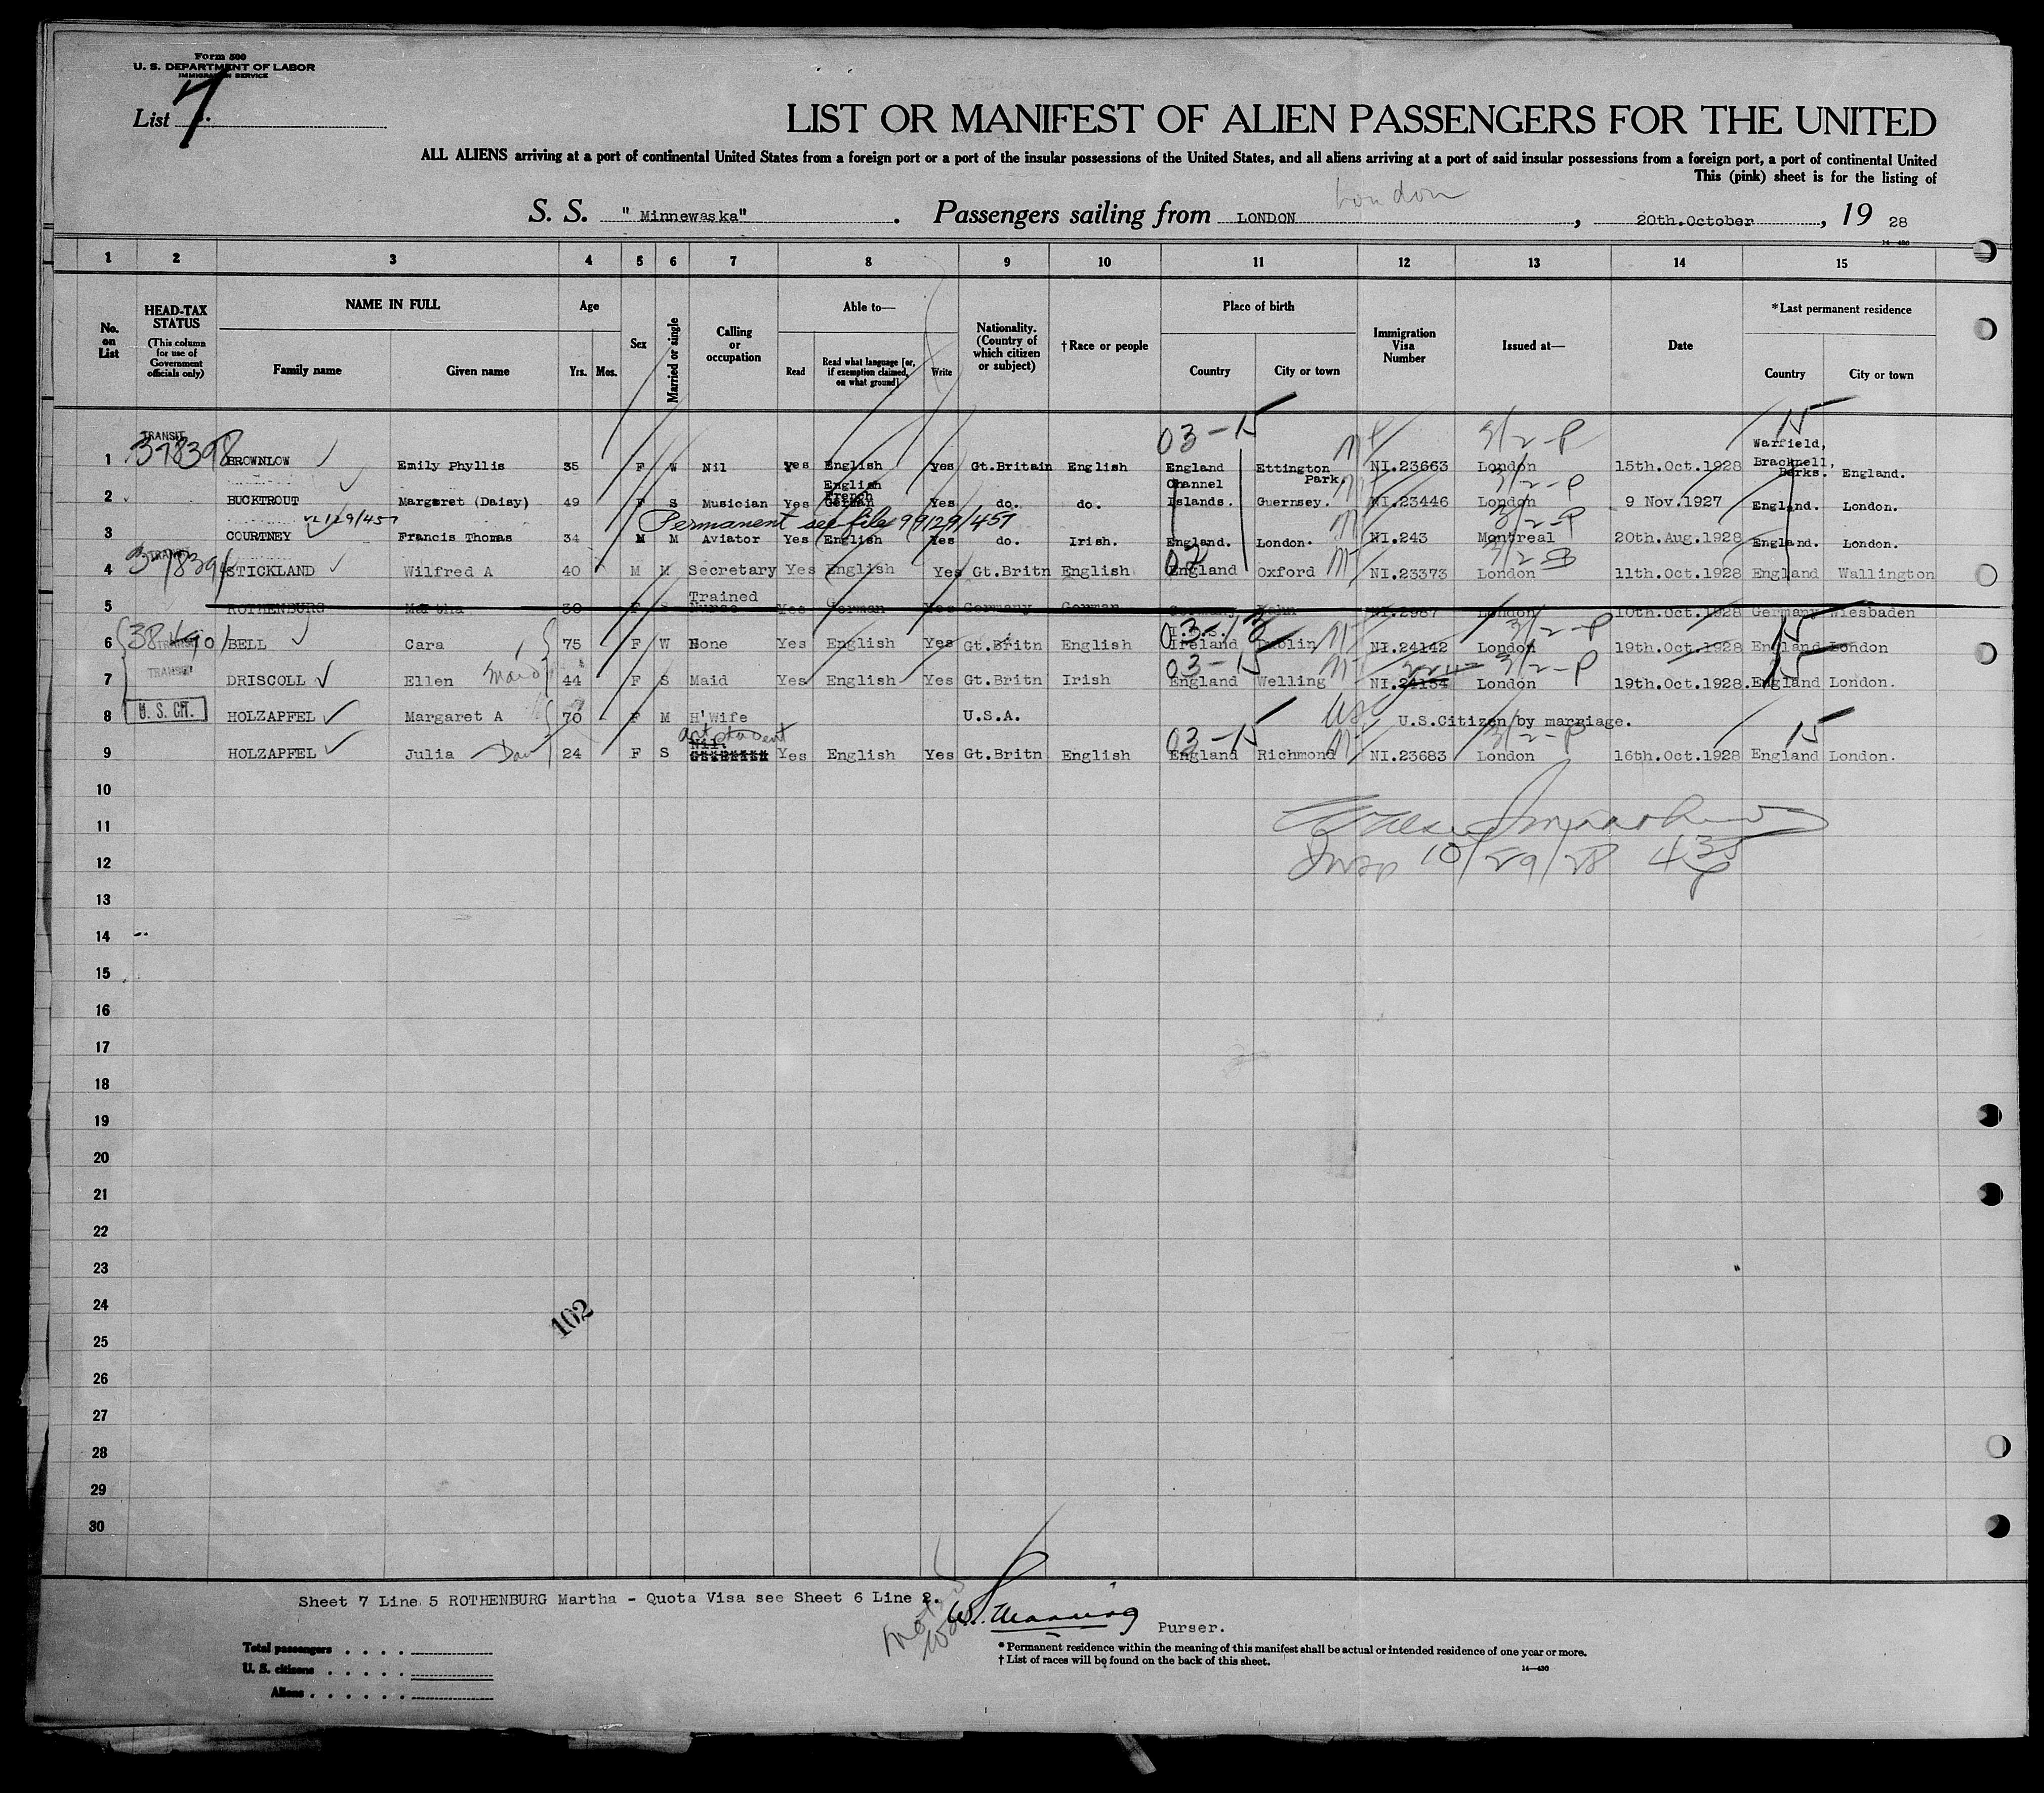 Form 500
U. S. DEPARTMENT OF LABOR
IMMIGRATION SERVICE
List 7
LIST OR MANIFEST OF ALIEN PASSENGERS FOR THE UNITED
ALL ALIENS arriving at a port of continental United States from a foreign port or a port of the insular possessions of the United States, and all aliens arriving at a port of said insular possessions from a foreign port, a port of continental United
This (pink) sheet is for the listing of
London
S. S. "Minnewaska". Passengers sailing from LONDON, 20th.October, 19 28
14-430
1 2 3 4 5 6 7 8 9 10 11 12 13 14 15
No. on List
HEAD-TAX STATUS
(This column for use of Government officials only)
NAME IN FULL
Family name Given name
Age
Yrs. Mos.
Sex
Married or single
Calling or occupation
Able to—
Read
Read what language [or, if exemption claimed, on what ground]
Write
Nationality. (Country of which citizen or subject)
†Race or people
Place of birth
Country City or town
Immigration Visa Number
Issued at—
Date
*Last permanent residence
Country City or town
TRANSIT 03-15 3/2-P 15
1 378398 BROWNLOW Emily Phyllis 35 F W Nil yes English yes Gt.Britain English England Ettington Park. NI.23663 London 15th.Oct.1928 Warfield, Bracknell, Berks. England.
2 BUCKTROUT Margaret (Daisy) 49 F S Musician Yes English French German Yes do. do. Channel Islands. Guernsey. NI.23446 London 3/2-P 9 Nov.1927 England. London.
Permanent see file 99129/457
3 COURTNEY Francis Thomas 34 M M Aviator Yes English Yes do. Irish. England. London. NI.243 Montreal 3/2-P 20th.Aug.1928 England. London.
4 TRANSIT STICKLAND Wilfred A 40 M M Secretary Yes English Yes Gt.Britn English 02 England Oxford NI.23373 London 11th.Oct.1928 England Wallington
5 ROTHENBURG Martha 30 F S Trained Nurse Yes German Yes Germany German Germany NI.2987 London 10th.Oct.1928 Germany Wiesbaden
6 TRANSIT BELL Cara 75 F W None Yes English Yes Gt.Britn English I.F.S. Ireland Dublin NI.24142 London 3/2-P 19th.Oct.1928 England London 15
7 TRANSIT DRISCOLL Ellen maid 44 F S Maid Yes English Yes Gt.Britn Irish 03-15 England Welling NI.24154 London 3/2-P 19th.Oct.1928. England London. 15
8 U. S. CIT. HOLZAPFEL Margaret A 70 F M H'Wife U.S.A. USC U.S.Citizen by marriage.
9 HOLZAPFEL Julia Dau 24 F S art student Nil. Yes English Yes Gt.Britn English 03-15 England Richmond NI.23683 London 3/2-P 16th.Oct.1928 England London. 15
10
11
12 Insp 10/29/28 4 35 P
13
14
15
16
17
18
19
20
21
22
23
24
102
25
26
27
28
29
30
Sheet 7 Line 5 ROTHENBURG Martha - Quota Visa see Sheet 6 Line 2.
W. Manning
Purser.
Total passengers
U. S. citizens
Aliens
* Permanent residence within the meaning of this manifest shall be actual or intended residence of one year or more.
† List of races will be found on the back of this sheet.
14-430